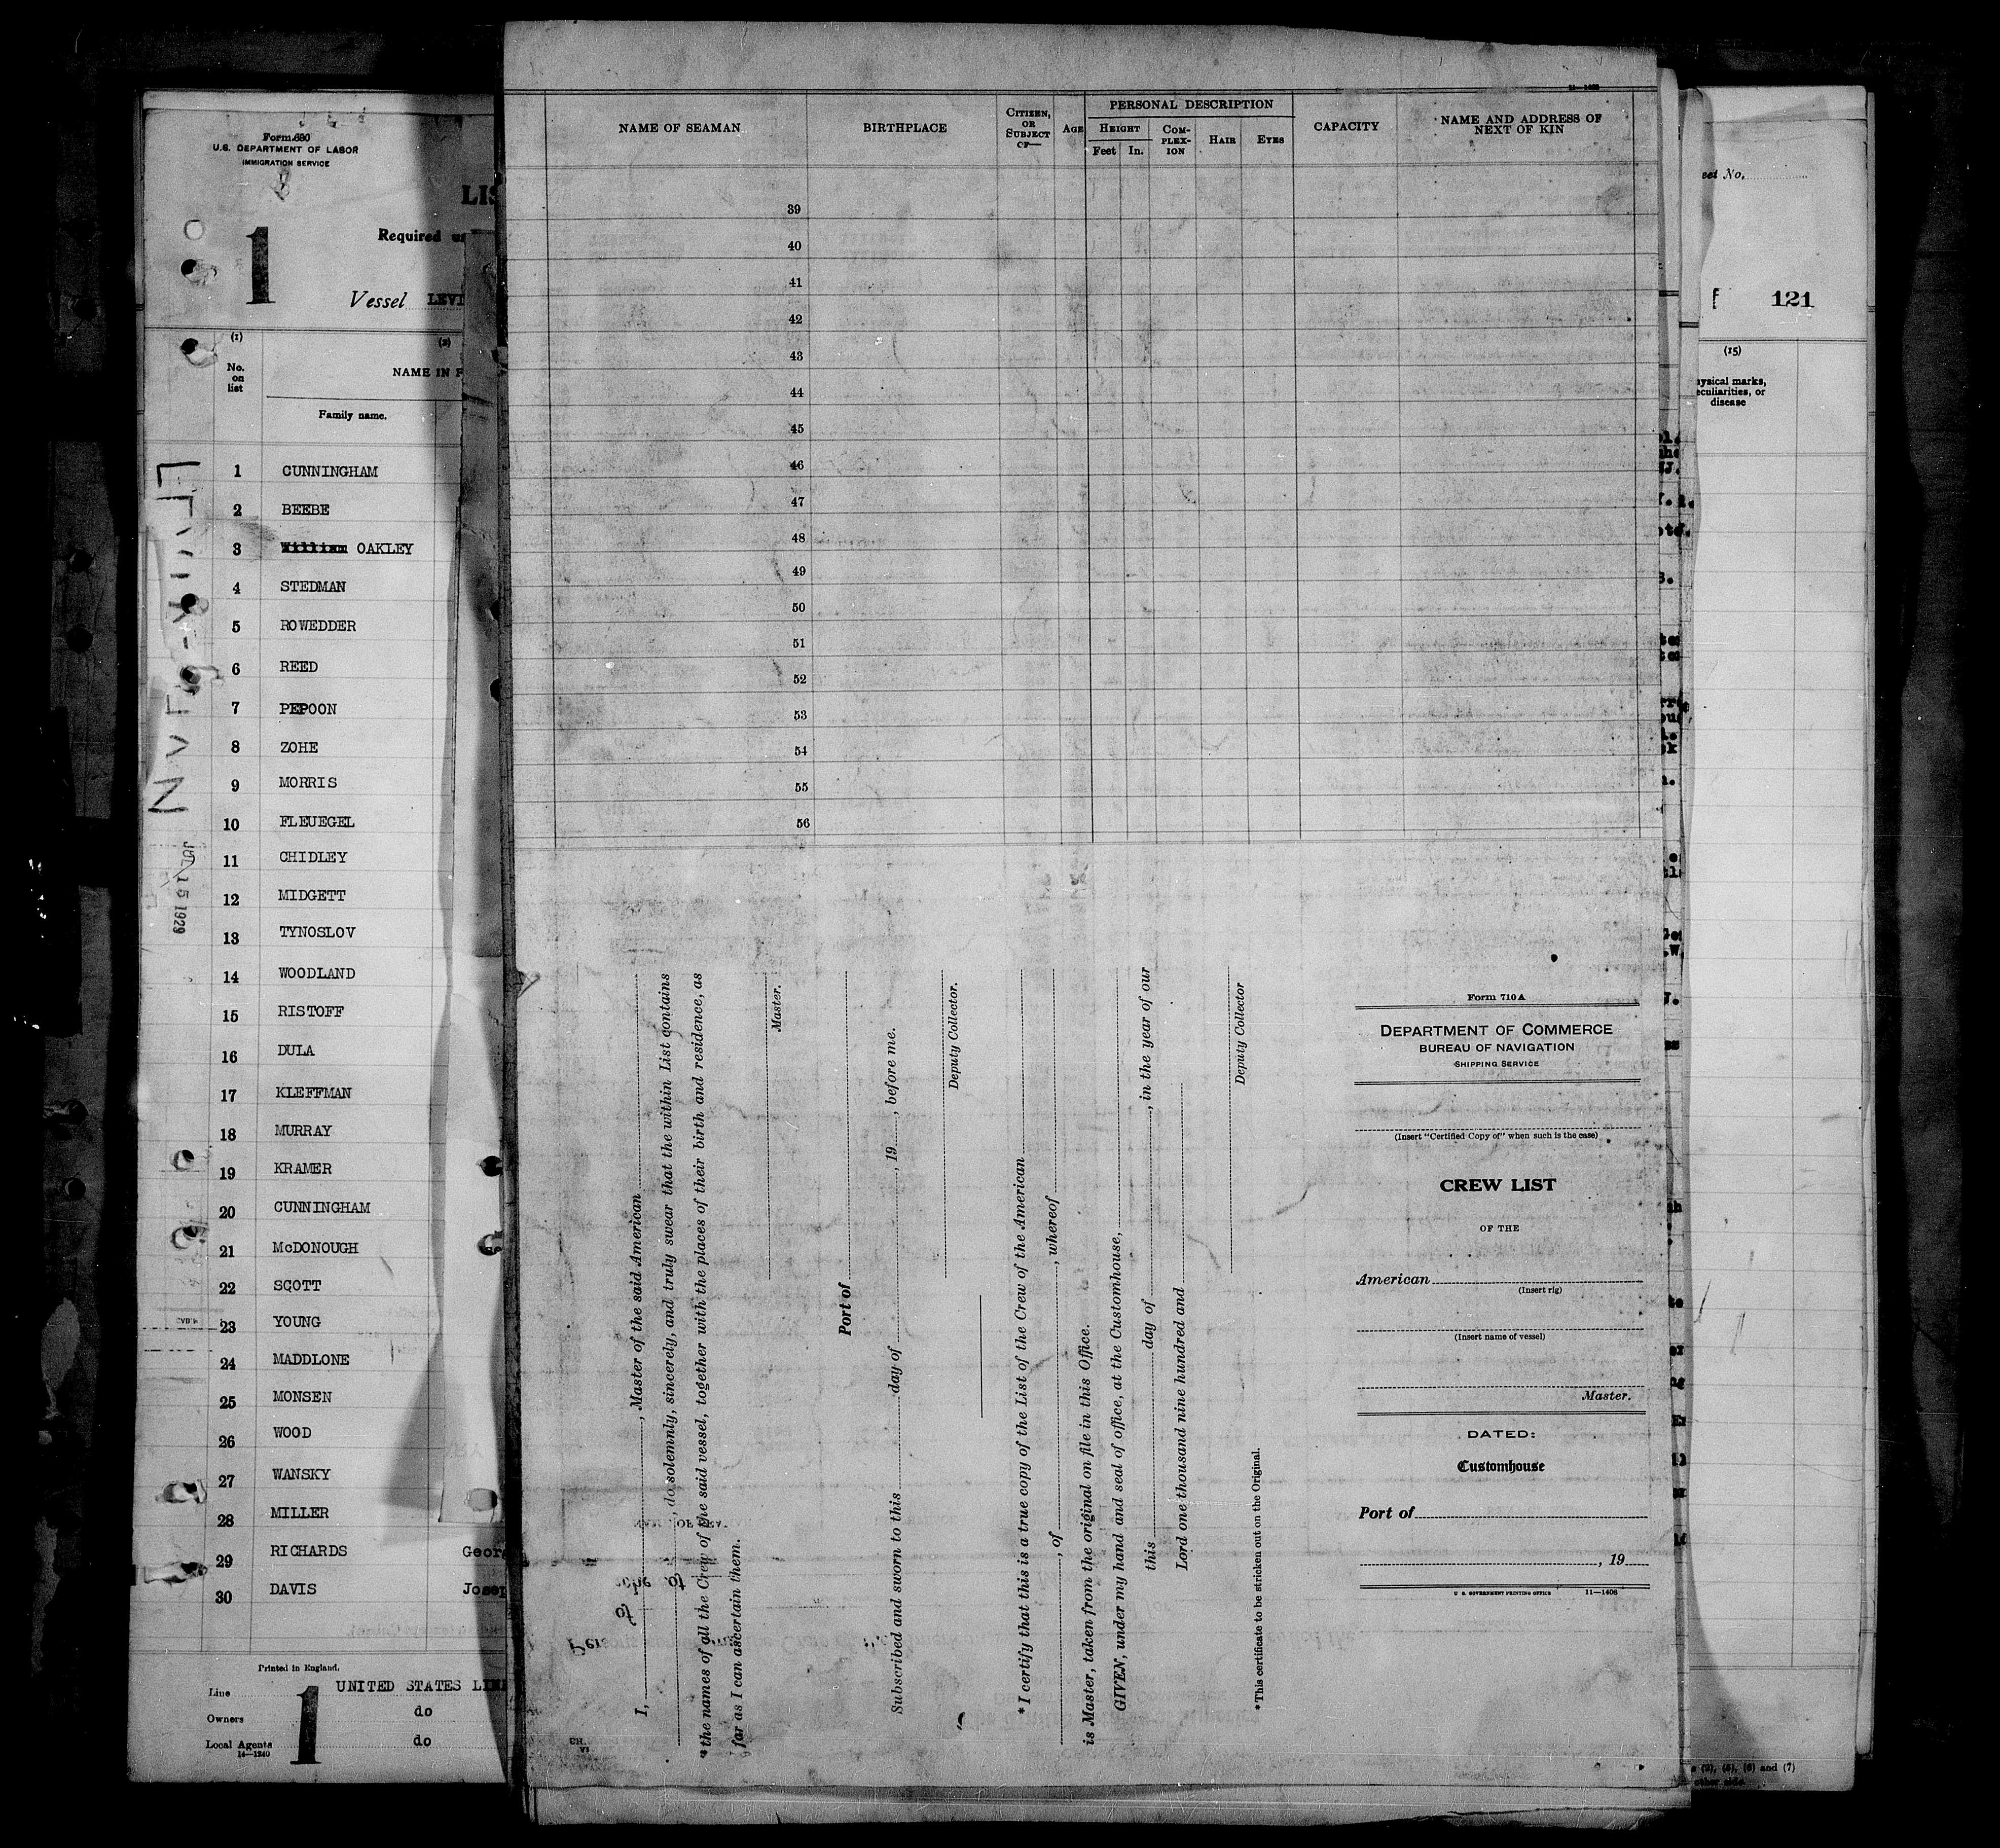 Form 680
U.S. DEPARTMENT OF LABOR
IMMIGRATION SERVICE
1
Required
Vessel
(1)
No.
on
list
(2)
NAME IN
Family name.
1 CUNNINGHAM
2 BEEBE
3 William OAKLEY
4 STEDMAN
5 ROWEDDER
6 REED
7 PEPOON
8 ZOHE
9 MORRIS
10 FLEUEGEL
11 CHIDLEY
12 MIDGETT
13 TYNOSLOV
14 WOODLAND
15 RISTOFF
16 DULA
17 KLEFFMAN
18 MURRAY
19 KRAMER
20 CUNNINGHAM
21 McDONOUGH
22 SCOTT
23 YOUNG
24 MADDLONE
25 MONSEN
26 WOOD
27 WANSKY
28 MILLER
29 RICHARDS
30 DAVIS
JUL 15 1929
Printed in England.
Line UNITED STATES
Owners do
Local Agents do
14—1240
1
NAME OF SEAMAN
BIRTHPLACE
CITIZEN,
OR
SUBJECT
OF—
AGE
PERSONAL DESCRIPTION
HEIGHT
Feet In.
COM-
PLEX-
ION
HAIR
EYES
CAPACITY
NAME AND ADDRESS OF
NEXT OF KIN
39
40
41
42
43
44
45
46
47
48
49
50
51
52
53
54
55
56
I, , Master of the said American
, do solemnly, sincerely, and truly swear that the within List contains
the names of all the Crew of the said vessel, together with the places of their birth and residence, as
far as I can ascertain them.
Master.
Port of
Subscribed and sworn to this day of , 19 , before me.
Deputy Collector.
* I certify that this is a true copy of the List of the Crew of the American
, of , whereof
is Master, taken from the original on file in this Office.
GIVEN, under my hand and seal of office, at the Customhouse,
this day of , in the year of our
Lord one thousand nine hundred and
Deputy Collector
* This certificate to be stricken out on the Original.
Form 710 A
DEPARTMENT OF COMMERCE
BUREAU OF NAVIGATION
SHIPPING SERVICE
(Insert "Certified Copy of" when such is the case)
CREW LIST
OF THE
American
(Insert rig)
(Insert name of vessel)
Master.
DATED:
Customhouse
Port of
, 19
U. S. GOVERNMENT PRINTING OFFICE 11—1408
No.
121
(15)
physical marks,
peculiarities, or
disease
(2), (5), (6) and (7)
other side.